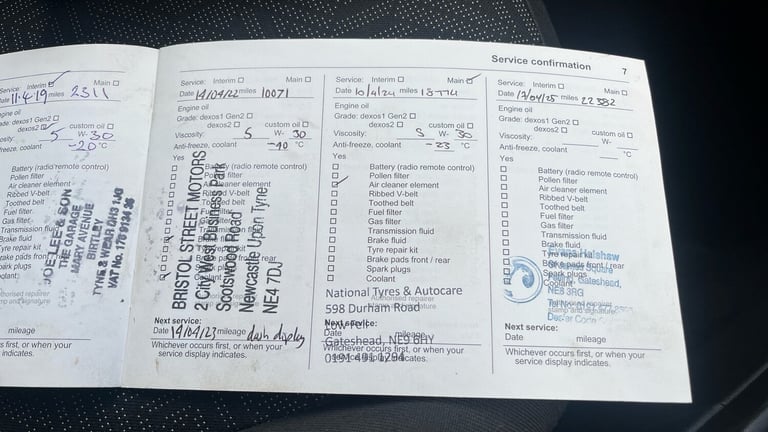 Service confirmation 7
Service: Interim
Main
Date 11.4.19 miles 2311
Engine oil
Grade: dexos1 Gen2
dexos2
custom oil
Viscosity: 5 W- 30
Anti-freeze, coolant -20 °C
Battery (radio remote control)
Pollen filter
Air cleaner element
Ribbed V-belt
Toothed belt
Fuel filter
Gas filter
Transmission fluid
Brake fluid
Tyre repair kit
Brake pads front / rear
Spark plugs
Coolant
JOE LEE & SON
THE GARAGE
MARY AVENUE
BIRTLEY
TYNE & WEAR DH3 1JG
Authorised repairer
stamp and signature
mileage
Whichever occurs first, or when your
indicates.
Service: Interim
Main
Date 19/04/22 miles 10071
Engine oil
Grade: dexos1 Gen2
dexos2
custom oil
Viscosity: 5 W- 30
Anti-freeze, coolant -40 °C
Yes
Battery (radio remote control)
Pollen filter
Air cleaner element
Ribbed V-belt
Toothed belt
Fuel filter
Gas filter
Transmission fluid
Brake fluid
Tyre repair kit
Brake pads front / rear
Spark plugs
Coolant
BRISTOL STREET MOTORS
2 City West Business Park
Scotswood Road
Newcastle Upon Tyne
NE4 7DJ
Next service:
Date 19/04/23 mileage dash display
Whichever occurs first, or when your
service display indicates.
Service: Interim
Main
Date 10/4/24 miles 18774
Engine oil
Grade: dexos1 Gen2
dexos2
custom oil
Viscosity: 5 W- 30
Anti-freeze, coolant -23 °C
Yes
Battery (radio remote control)
Pollen filter
Air cleaner element
Ribbed V-belt
Toothed belt
Fuel filter
Gas filter
Transmission fluid
Brake fluid
Tyre repair kit
Brake pads front / rear
Spark plugs
Coolant
National Tyres & Autocare
Authorised repairer
stamp and signature
598 Durham Road
Low Fell
Next service:
Date mileage
Gateshead, NE9 6HY
Whichever occurs first, or when your
service display indicates.
Service: Interim
Main
Date 17/04/25 miles 22382
Engine oil
Grade: dexos1 Gen2
dexos2
custom oil
Viscosity: W-
Anti-freeze, coolant °C
Yes
Battery (radio remote control)
Pollen filter
Air cleaner element
Ribbed V-belt
Toothed belt
Fuel filter
Gas filter
Transmission fluid
Brake fluid
Tyre repair kit
Brake pads front / rear
Spark plugs
Coolant
Evans Halshaw
Square
Gateshead,
NE8 3RG
Authorised repairer
stamp and signature
Next service:
Date mileage
Whichever occurs first, or when your
service display indicates.